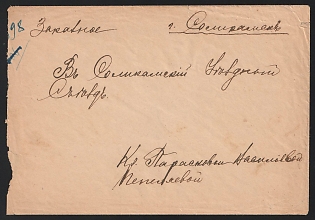 98
Заказное г. Соликамскъ
Въ Соликамскій Уѣздный
Съѣздъ.
Кр. Парасковьи
Пепеляевой